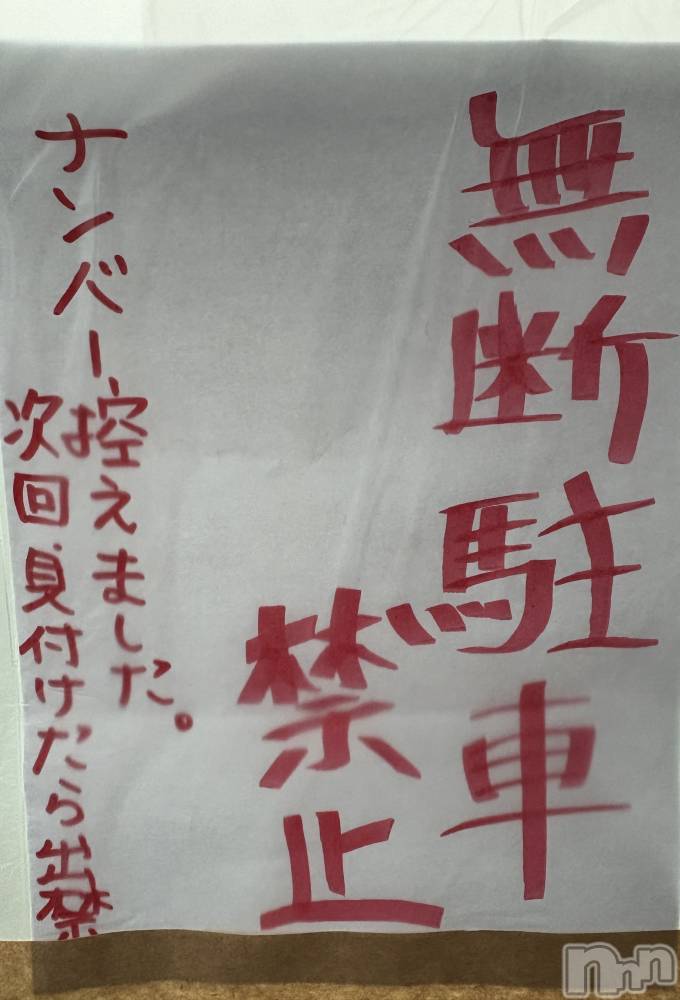 無断駐車
禁止
ナンバー控えました。
次回見付けたら出禁
nnn